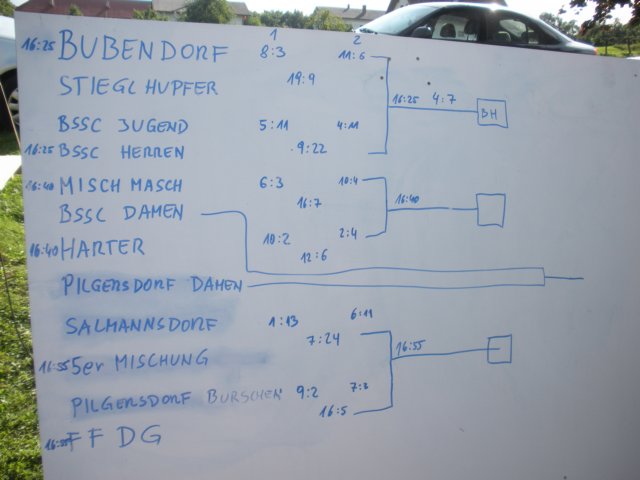 1 2
16:25 BUBENDORF 8:3 11:6
STIEGLHUPFER 19:9
16:25 4:7 BH
BSSC JUGEND 5:11 4:11
16:25 BSSC HERREN 9:22
16:40 MISCH MASCH 6:3 10:4
16:7 16:40
BSSC DAMEN
10:2 2:4
16:40 HARTER 12:6
PILGERSDORF DAMEN
SALMANNSDORF 1:13 6:11
7:24 16:55
16:55 5er MISCHUNG
PILGERSDORF BURSCHEN 9:2 7:3
16:5
16:55 F F D G